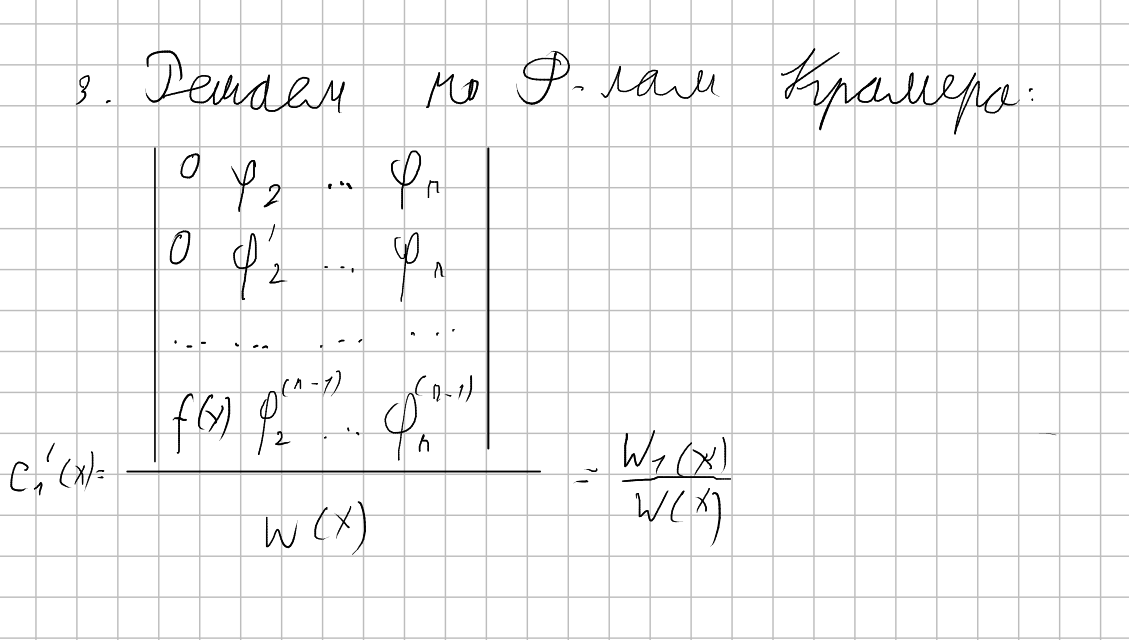 3. Решаем по Ф-лам Крамера:
0 φ₂ ... φₙ
0 φ₂′ ... φₙ
... ... ... ...
f(x) φ₂⁽ⁿ⁻¹⁾ ... φₙ⁽ⁿ⁻¹⁾
C₁′(x)= = W₁(x)
W(x) W(x)